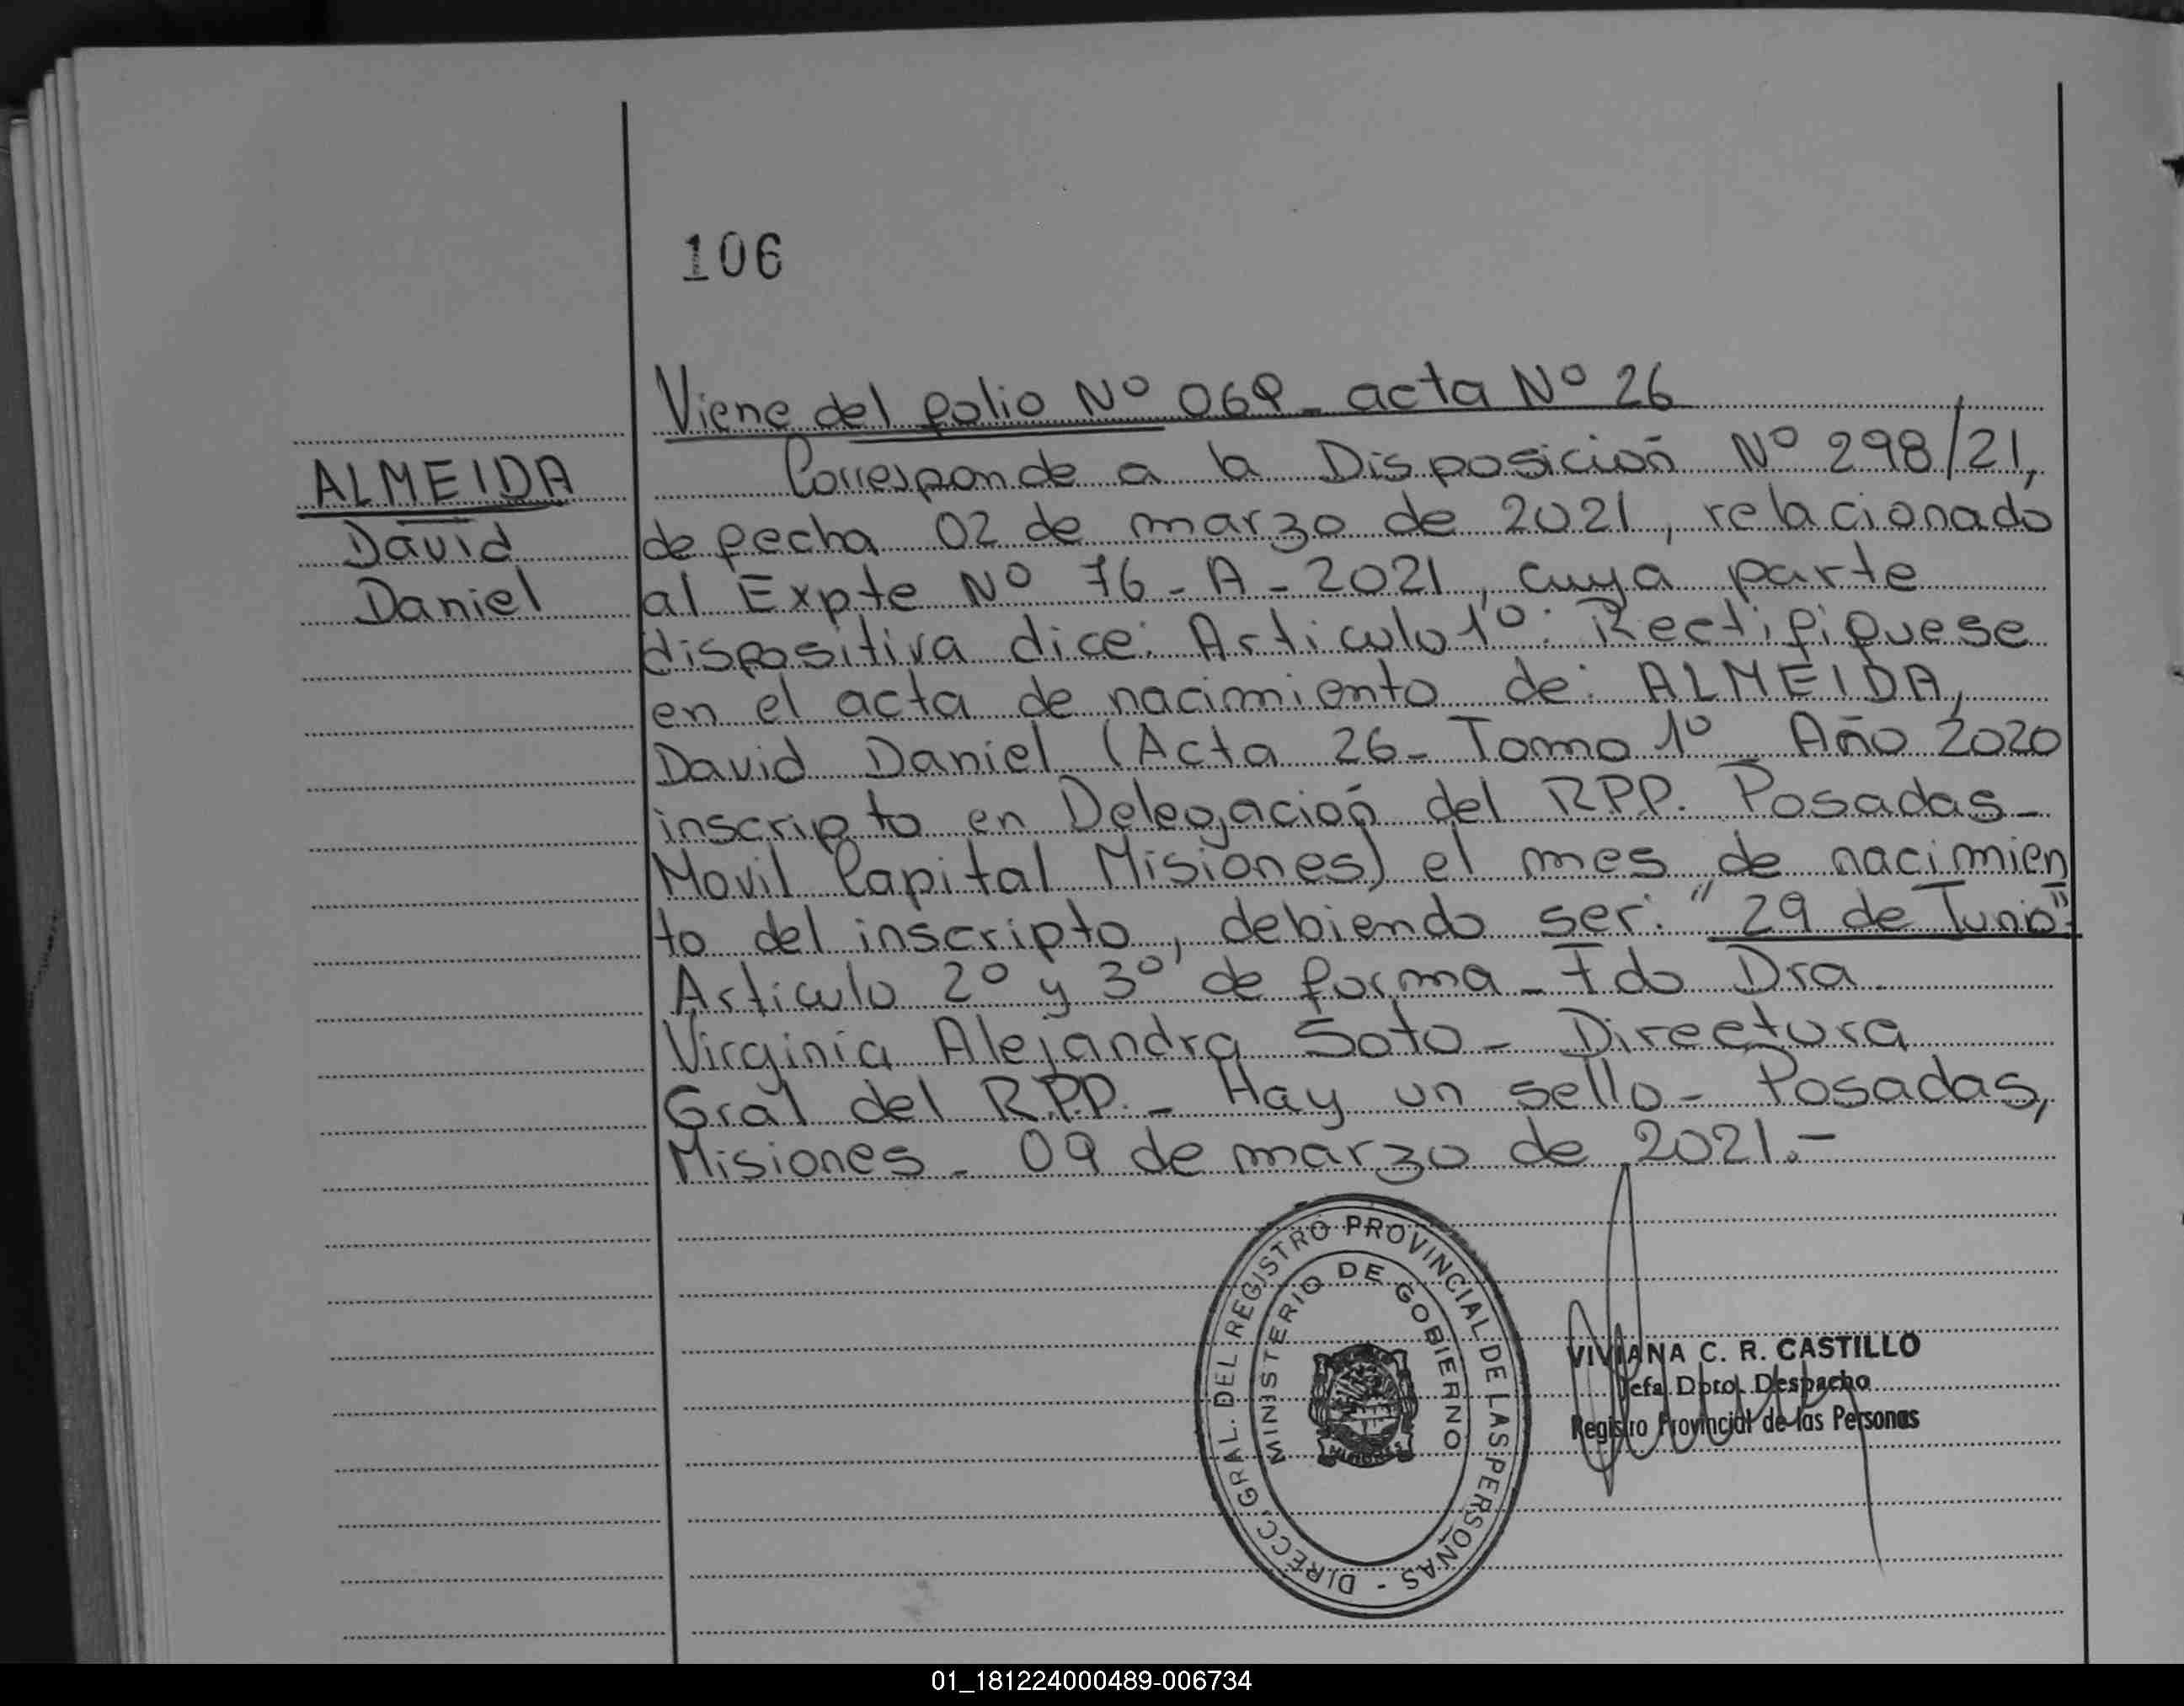 106
Viene del folio Nº 069 - acta Nº 26
ALMEIDA
David
Daniel
Corresponde a la Disposición Nº 298/21,
de fecha 02 de marzo de 2021, relacionado
al Expte Nº 76 - A - 2021, cuya parte
dispositiva dice: Articulo 1º: Rectifiquese
en el acta de nacimiento de: ALMEIDA,
David Daniel (Acta 26 - Tomo 1º Año 2020
inscripto en Delegación del RPP. Posadas -
Movil Capital Misiones) el mes de nacimien
to del inscripto, debiendo ser: "29 de Junio".
Articulo 2º y 3º de forma - Fdo Dra.
Virginia Alejandra Soto - Directora
Gral del R.P.P. - Hay un sello - Posadas,
Misiones - 09 de marzo de 2021.-
DIRECC. GRAL. DEL REGISTRO PROVINCIAL DE LAS PERSONAS -
MINISTERIO DE GOBIERNO
MISIONES
VIVIANA C. R. CASTILLO
Jefa Dpto. Despacho
Registro Provincial de las Personas
01_181224000489-006734